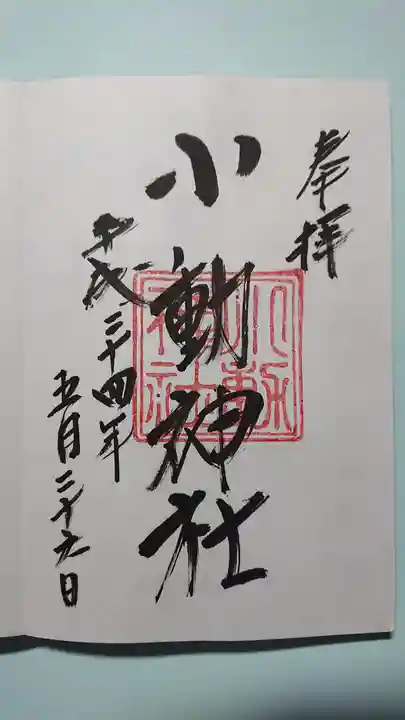 奉拝
小動神社
平成二十四年
五月二十九日
小動
神社